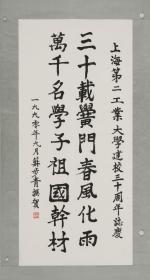 上海第二工業大學建校三十周年誌慶
三十載黌門春風化雨
萬千名學子祖國幹材
一九九〇年九月蘇步青撰賀